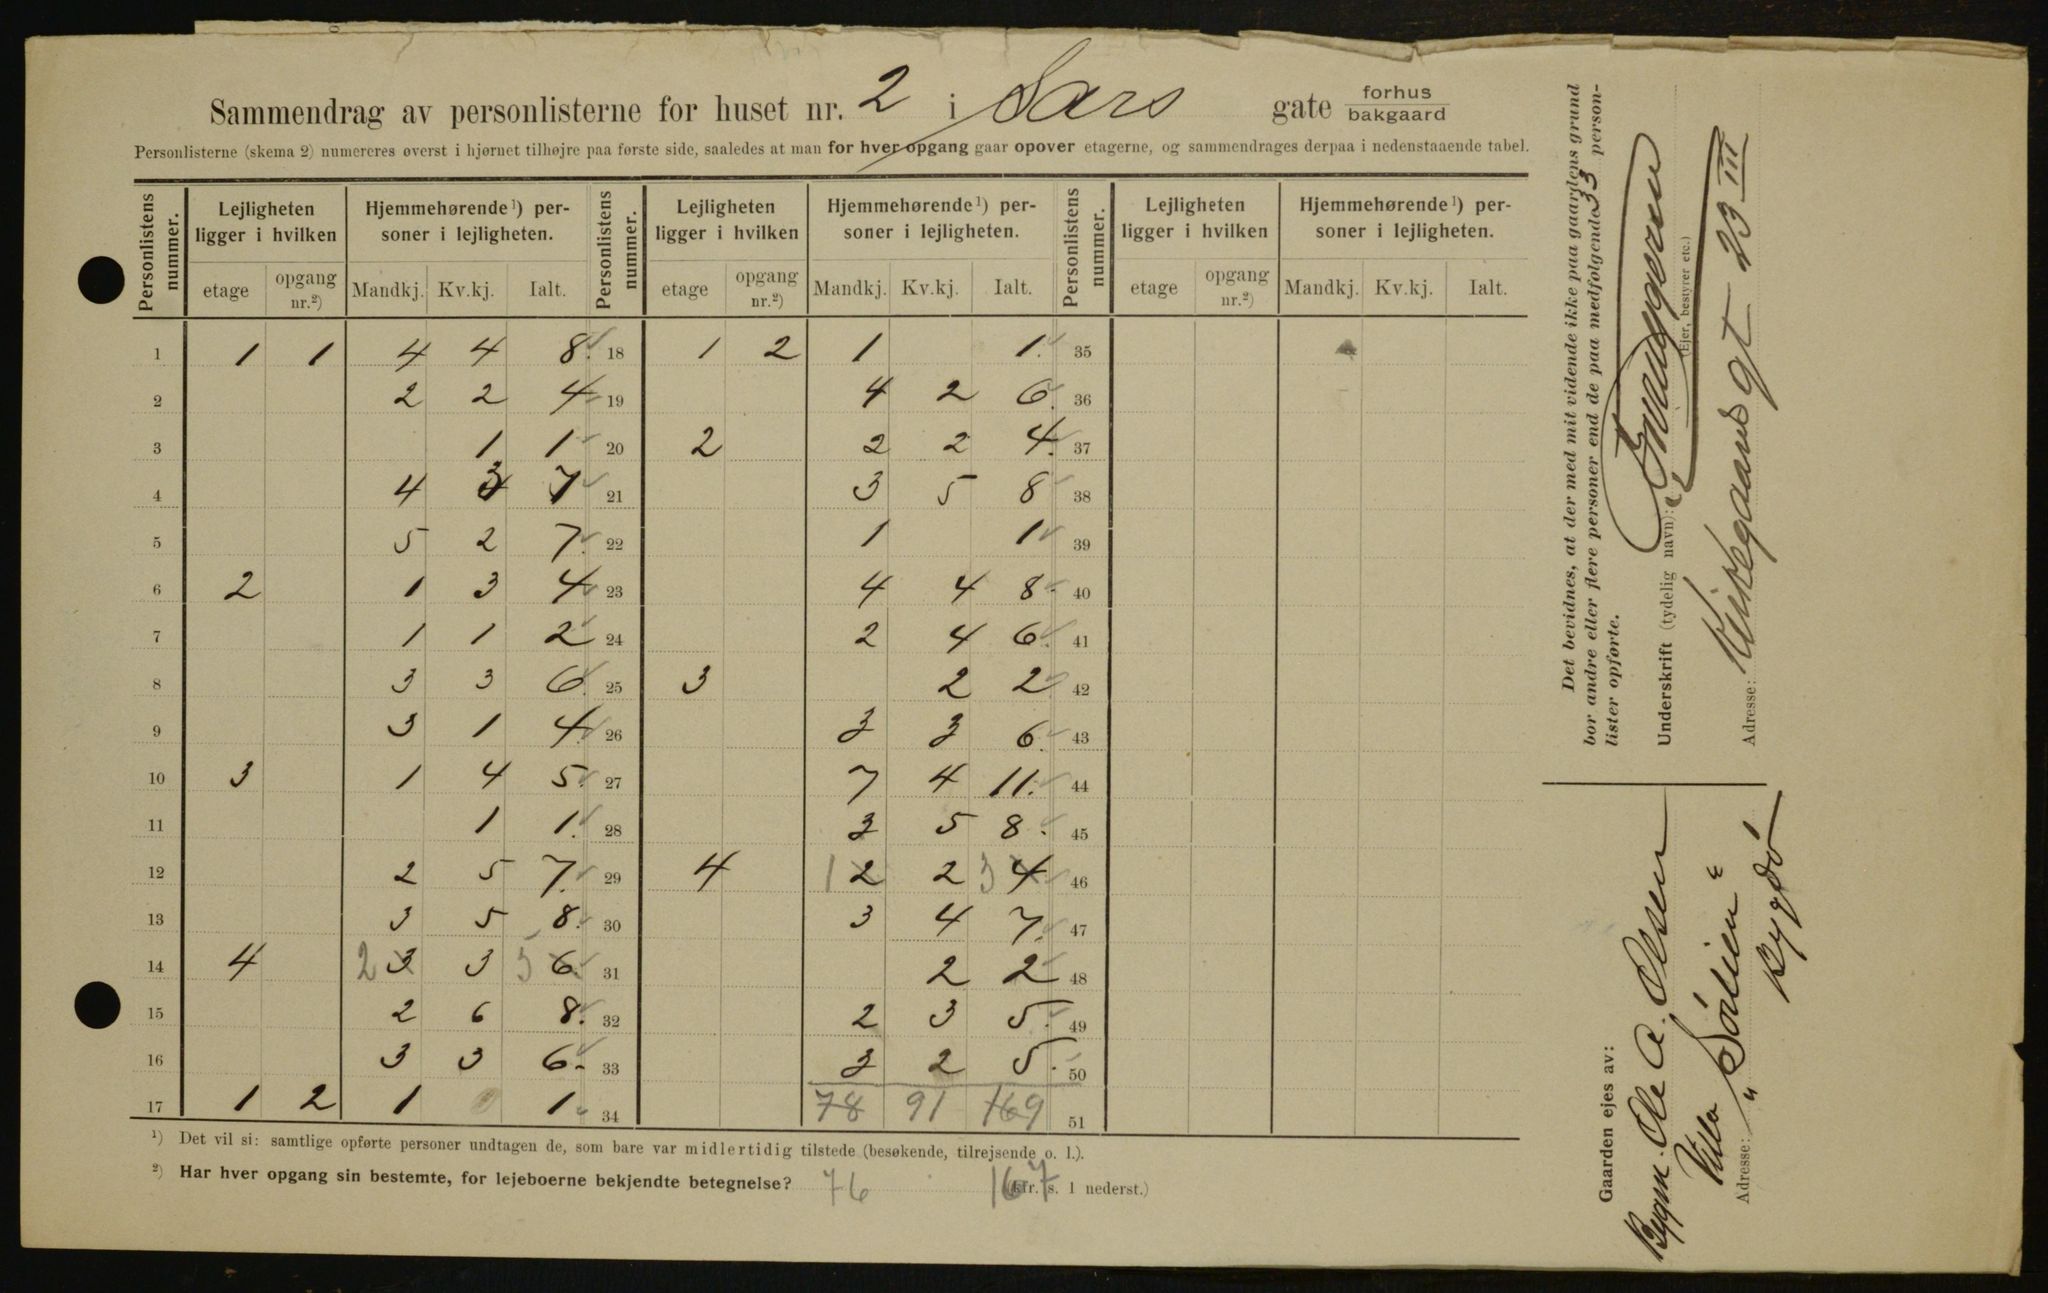 Sammendrag av personlisterne for huset nr. 2 i Sars gate forhus bakgaard
Personlisterne (skema 2) numereres øverst i hjørnet tilhøjre paa første side, saaledes at man for hver opgang gaar opover etagerne, og sammendrages derpaa i nedenstaaende tabel.
Personlistens nummer. Lejligheten ligger i hvilken Hjemmehørende ¹) personer i lejligheten. Personlistens nummer. Lejligheten ligger i hvilken Hjemmehørende ¹) personer i lejligheten. Personlistens nummer. Lejligheten ligger i hvilken Hjemmehørende ¹) personer i lejligheten.
etage opgang nr.²) Mandkj. Kv.kj. Ialt. etage opgang nr.²) Mandkj. Kv.kj. Ialt. etage opgang nr.²) Mandkj. Kv.kj. Ialt.
1 1 1 4 4 8. 18 1 2 1 1. 35
2 2 2 4 19 4 2 6. 36
3 1 1 20 2 2 2 4. 37
4 4 3 7 21 3 5 8 38
5 5 2 7. 22 1 1 39
6 2 1 3 4 23 4 4 8. 40
7 1 1 2 24 2 4 6. 41
8 3 3 6. 25 3 2 2 42
9 3 1 4. 26 3 3 6. 43
10 3 1 4 5. 27 7 4 11. 44
11 1 1. 28 3 5 8. 45
12 2 5 7. 29 4 1 2 2 3 4 46
13 3 5 8. 30 3 4 7. 47
14 4 2 3 3 5 6. 31 2 2 48
15 2 6 8. 32 2 3 5. 49
16 3 3 6. 33 3 2 5. 50
17 1 2 1 1. 34 78 91 169 51
¹) Det vil si: samtlige opførte personer undtagen de, som bare var midlertidig tilstede (besøkende, tilrejsende o. l.).
²) Har hver opgang sin bestemte, for lejeboerne bekjendte betegnelse? 76 167 (kfr. s. 1 nederst.)
Det bevidnes, at der med mit vidende ikke paa gaardens grund
bor andre eller flere personer end de paa medfølgende 33 person-
lister opførte.
Underskrift (tydelig navn):
(Ejer, bestyrer etc.)
Adresse: Kirkegaardsgt 23 III
Gaarden ejes av:
Bygm. Ole A. Olsen
Villa "Sólien"
Adresse: Bygdö